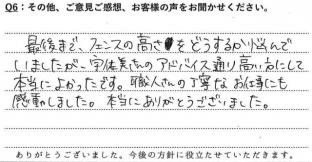 Q6：その他、ご意見ご感想、お客様の声をお聞かせください。
最後まで、フェンスの高さをどうするか悩んで
いましたが、宇佐美さんのアドバイス通り高い方にして
本当によかったです。職人さんの丁寧なお仕事にも
感動しました。本当にありがとうございました。
ありがとうございました。今後の方針に役立たせていただきます。